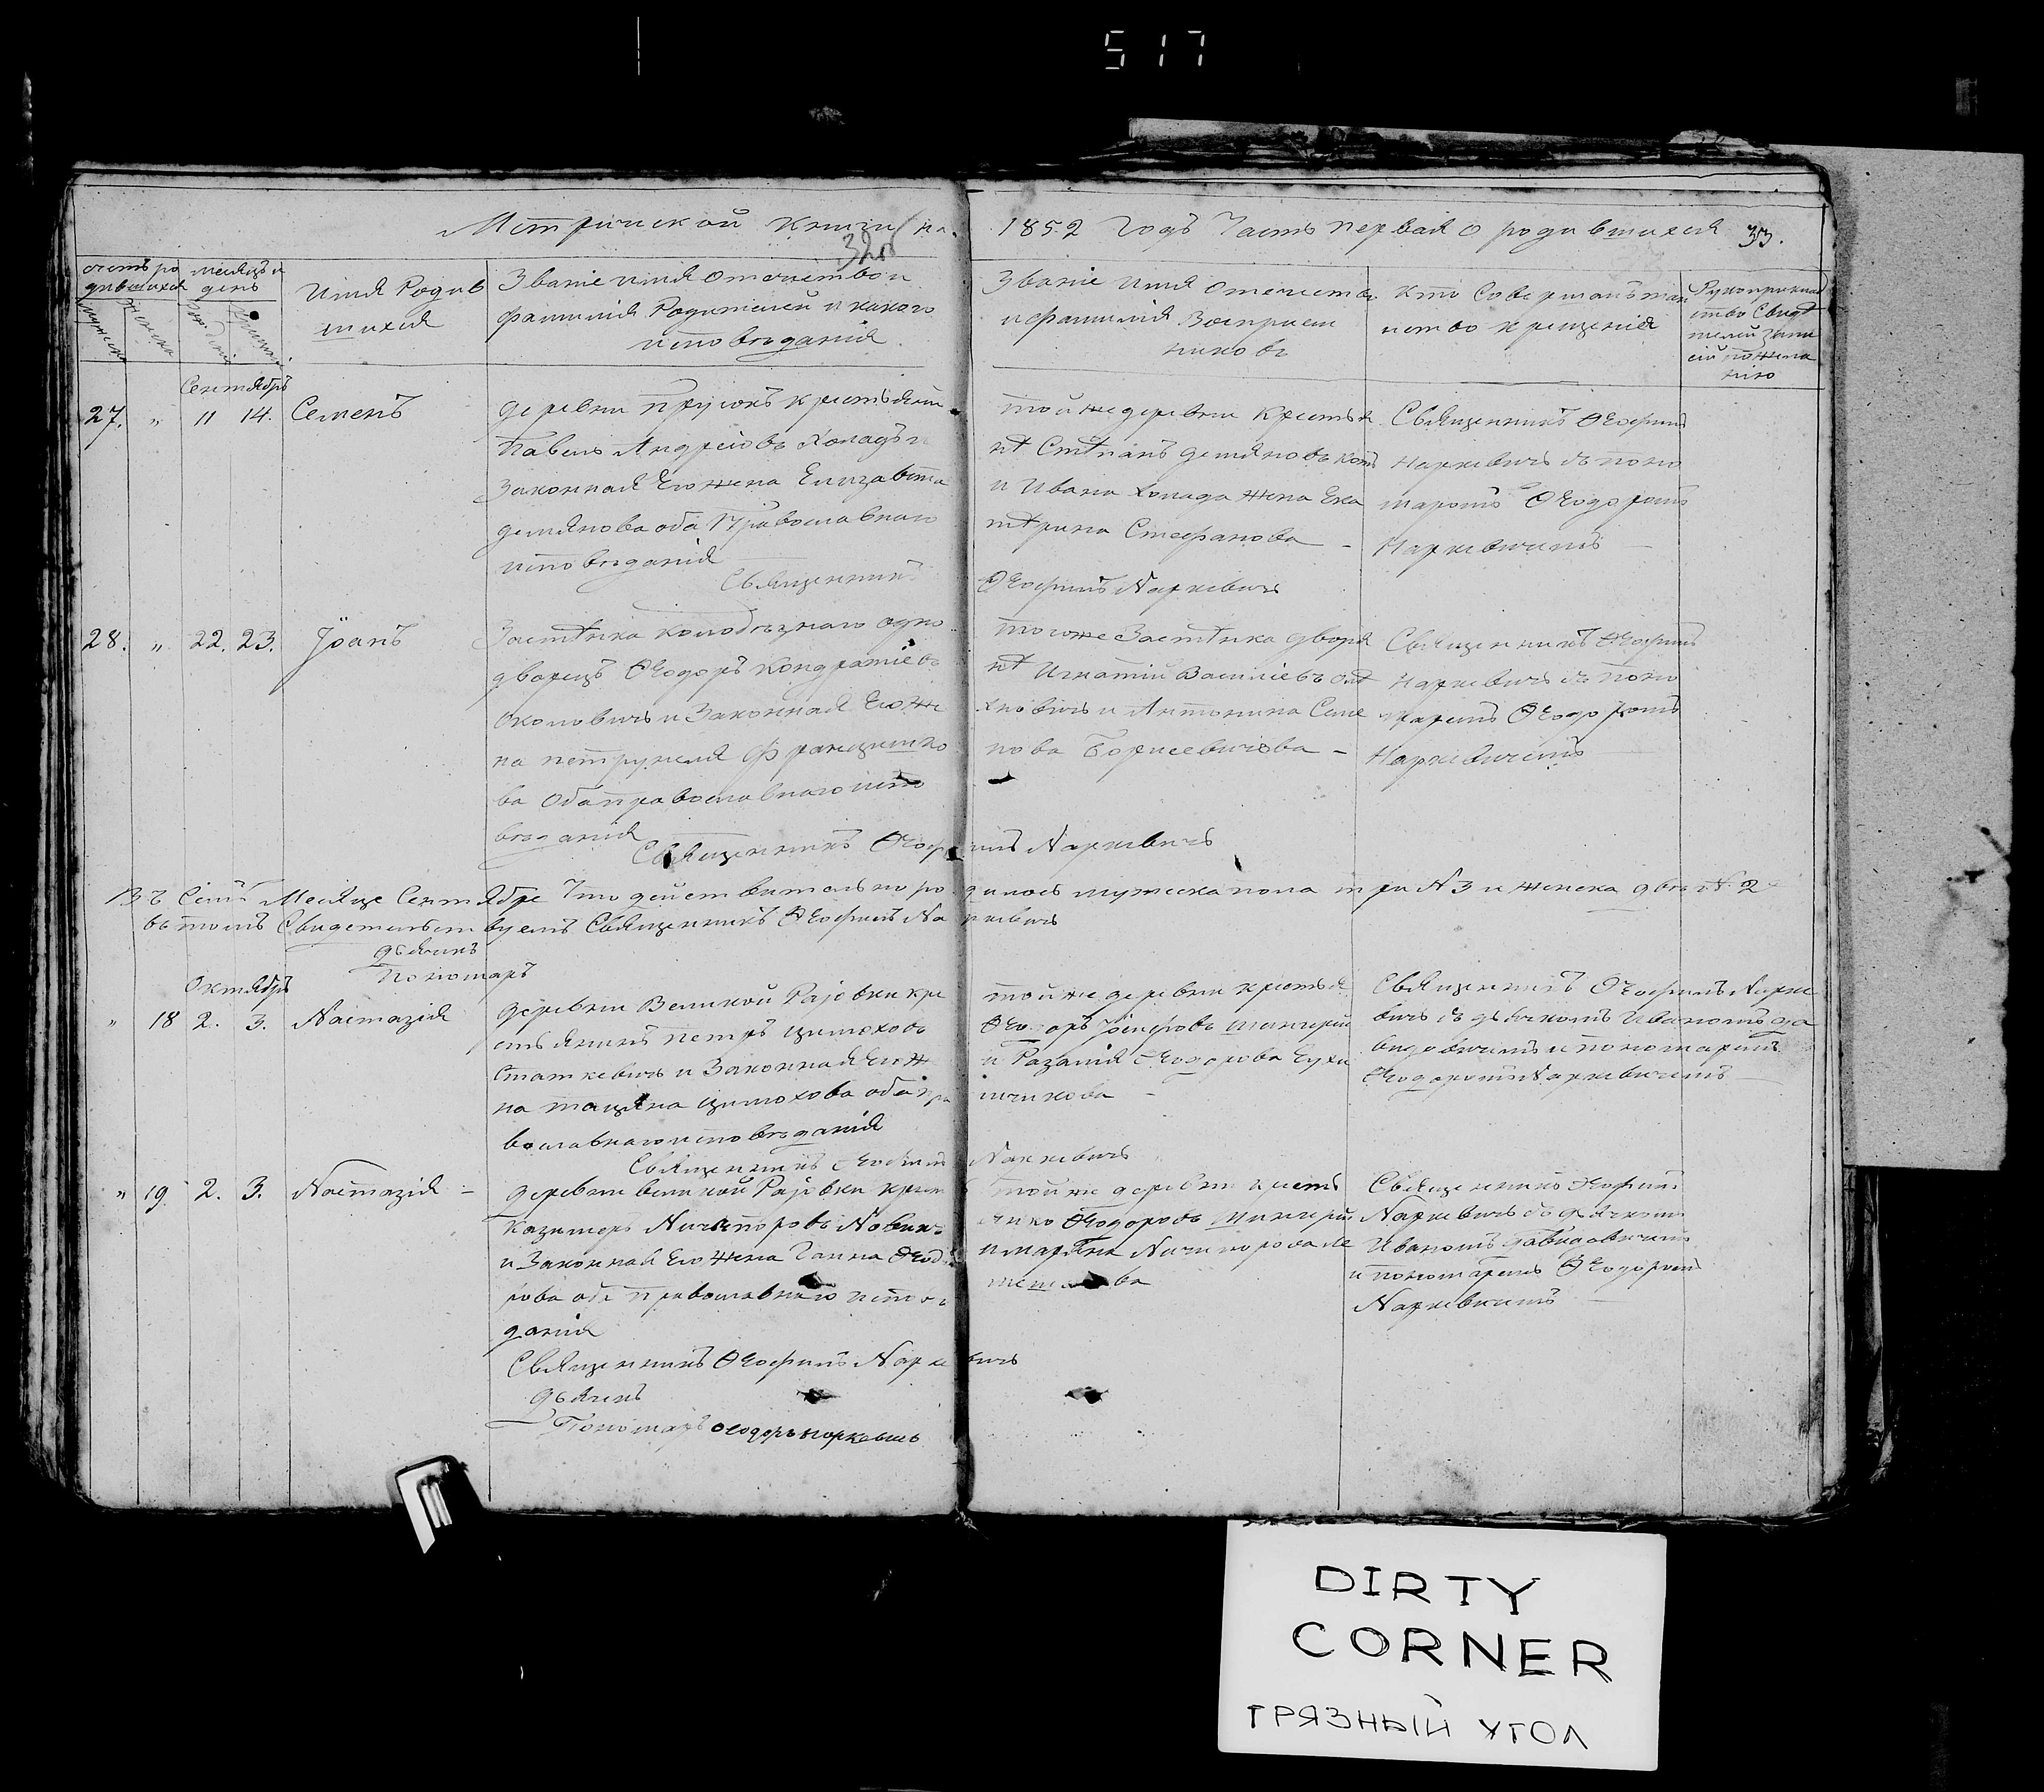 517
Метрической книги на
1852 Годъ Часть первая о родившихся 33.
320
счетъ ро
дившихся
мужеска
женска
месяцъ и
день
Имя Родив
шихся
Званіе имя отечество и
фамилія Родителей и какого
исповѣданія
Званіе имя отечество
и фамилія Воспріем
никовъ
кто Совершалъ таи
нство крещенія
Рукоприклад
ство Свидѣ
телей запи
сей по жела
нію
Сентябрь
27. " 11 14. Семенъ
деревни Прусокъ крестьянин
Павелъ Андреіовъ Хопадъ и
Законная Его жена Елизавета
демянова оба Православнаго
исповѣданія
Священникъ Ѳеофилъ Наркевичъ
той же деревни Крестья
нѣ Стѣпанъ демяновъ
и Ивана Хопада жена Ека
тѣрина Стефанова -
Священникъ Ѳеофилъ
Наркевичъ съ поно
маромъ Ѳеодоромъ
Наркевичемъ
28. " 22. 23. Іоанъ
Застѣнка колодѣзнаго одно
дворецъ Ѳеодоръ Кондратіевъ
Околовичъ и Законная Его же
на петрунеля Францишко
ва Оба православнаго испо
вѣданія
Священникъ Ѳеофилъ Наркевичъ
того же Застѣнка дворя
нѣ Игнатій Василіевъ
хновичъ и Антонина Семе
нова Борисевичова -
Священникъ Ѳеофилъ
Наркевичъ съ поно
маремъ Ѳеодоромъ
Наркевичемъ
Въ Семъ Месяце Сентябре Что действительно родилось мужеска пола три N 3 и женска двѣ N. 2
въ томъ Свидетельствуемъ Священникъ Ѳеофилъ Наркевичъ
дьячикъ
Пономаръ
Октябрь
" 18 2. 3. Настазія
деревни Великой Раіовки кре
стьянинъ петръ Цимоховъ
Статкевичъ и Законная Его же
на тацяна Цимохова оба пра
вославнаго исповѣданія
Священникъ Ѳеофилъ Наркевичъ
той же деревни крестья
Ѳеодоръ Іосифовъ
и Разалія Ѳеодорова
Священникъ Ѳеофилъ Нарке
вичъ съ дьячкомъ Иваномъ Да
видовичемъ и пономаремъ
Ѳеодоромъ Наркевичемъ
" 19 2. 3. Настазія -
деревни великой Раіовки крест
Казимеръ Ничипоровъ
и Законная Его жена Ганна Ѳеодо
рова оба православнаго исповѣ
данія
Священникъ Ѳеофилъ Наркевичъ
дьячекъ
Пономаръ Ѳеодоръ Наркевичъ
той же деревни крестья
Ѳеодоровъ
и Маряна Ничипорова
Священникъ Ѳеофилъ
Наркевичъ съ дьячкомъ
Иваномъ Давидовичемъ
и пономаремъ Ѳеодоромъ
Наркевичемъ
DIRTY
CORNER
ГРЯЗНЫЙ УГОЛ